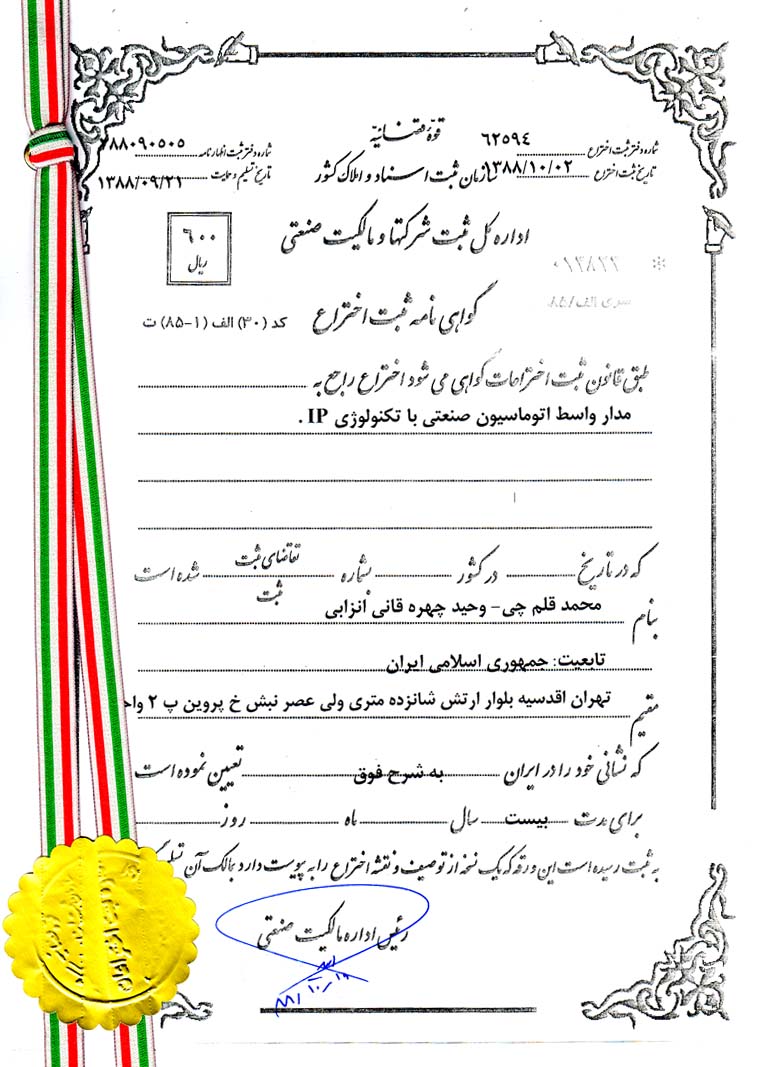 قوهٔ قضائیه
شماره دفتر ثبت اختراع ۶۲۵۹۴
شماره دفتر ثبت اظهارنامه ۸۸۰۹۰۵۰۵
تاریخ ثبت اختراع ۱۳۸۸/۱۰/۰۲
سازمان ثبت اسناد و املاک کشور
تاریخ تسلیم و حمایت ۱۳۸۸/۰۹/۲۱
اداره کل ثبت شرکتها و مالکیت صنعتی
۶۰۰
ریال
سری الف/۸۵
گواهی نامه ثبت اختراع
کد (۳۰) الف (۱-۸۵) ت
طبق قانون ثبت اختراعات گواهی می شود اختراع راجع به
مدار واسط اتوماسیون صنعتی با تکنولوژی IP .
که در تاریخ در کشور بشماره تقاضای ثبت شده است
ثبت
بنام محمد قلم چی- وحید چهره قانی انزابی
تابعیت: جمهوری اسلامی ایران
مقیم تهران اقدسیه بلوار ارتش شانزده متری ولی عصر نبش خ پروین پ ۲
که نشانی خود را در ایران به شرح فوق تعیین نموده است
برای مدت بیست سال ماه روز
به ثبت رسیده است این ورقه که یک نسخه از توصیف و نقشه اختراع را به پیوست دارد بمالک آن
رئیس اداره مالکیت صنعتی